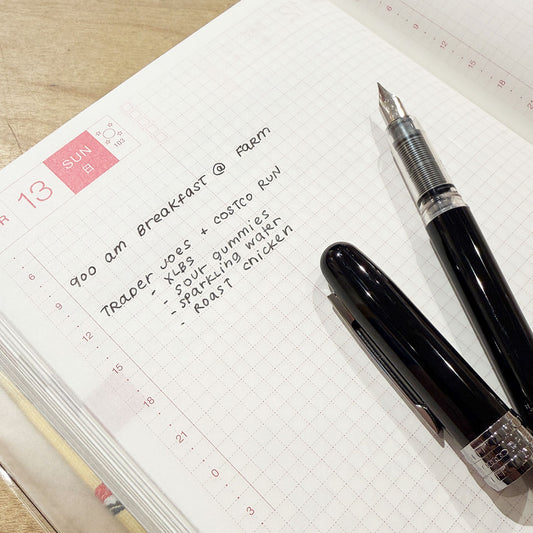 R 13 SUN
日
103
900 am Breakfast @ Farm
Trader Joes + Costco Run
- XLBS
- Sour gummies
- Sparkling water
- Roast chicken
6
9
12
15
18
21
0
3
6
9
12
15
18